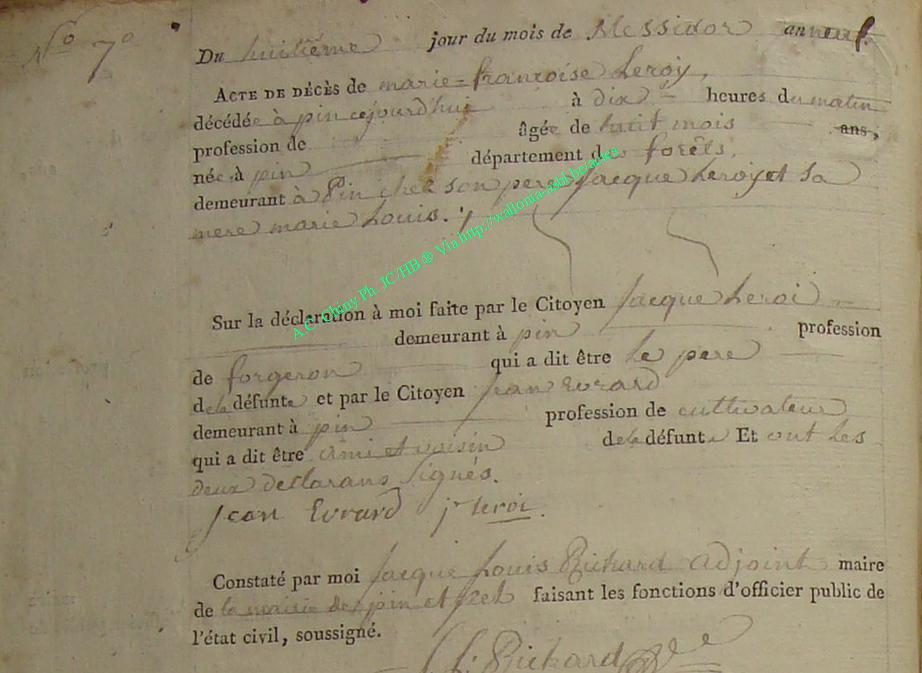 No 7º
Du huitième jour du mois de Messidor an neuf.
ACTE DE DÉCÈS de marie-francoise Leroy,
décédée à pin cejourd'hui à dix heures du matin
profession de âgée de huit mois ans,
née à pin département des forêts.
demeurant à Pin chez son pere Jacque Leroy et sa
mere marie Louis.
A.C. Chiny Ph. JC/HB ® Via http://wallonia-asbl.be/acdea
Sur la déclaration à moi faite par le Citoyen Jacque Leroi
demeurant à pin profession
de forgeron qui a dit être le pere
de la défunte et par le Citoyen jean Evrard
demeurant à pin profession de cultivateur
qui a dit être ami et voisin de la défunte Et ont les
deux déclarans signés.
Jean Evrard j leroi.
Constaté par moi Jacque Louis Richard adjoint maire
de la mairie de pin et faisant les fonctions d'officier public de
l'état civil, soussigné.
Richard